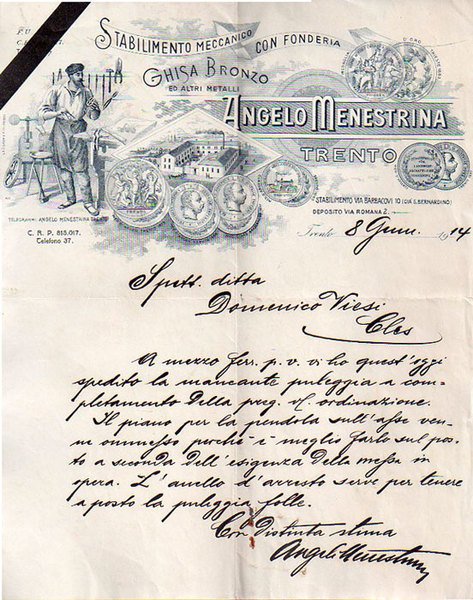 STABILIMENTO MECCANICO CON FONDERIA
GHISA BRONZO
ED ALTRI METALLI
ANGELO MENESTRINA
TRENTO
STABILIMENTO VIA BARBACOVI 10 (GIÀ S. BERNARDINO)
DEPOSITO VIA ROMANA 2.
TELEGRAMMI: ANGELO MENESTRINA TRENTO
C. R. P. 815.017.
Telefono 37.
Trento 8 Genn. 1914
Spett. ditta
Domenico Viesi
Cles
A mezzo ferr. p. v. vi ho quest'oggi
spedito la mancante puleggia a com-
pletamento della preg. Vs. ordinazione.
Il piano per la pendola sull'asse ven-
ne ommesso perchè è meglio farlo sul pos-
to a seconda dell'esigenza della messa in
opera. L'anello d'arresto serve per tenere
a posto la puleggia folle.
Con distinta stima
Angelo Menestrina